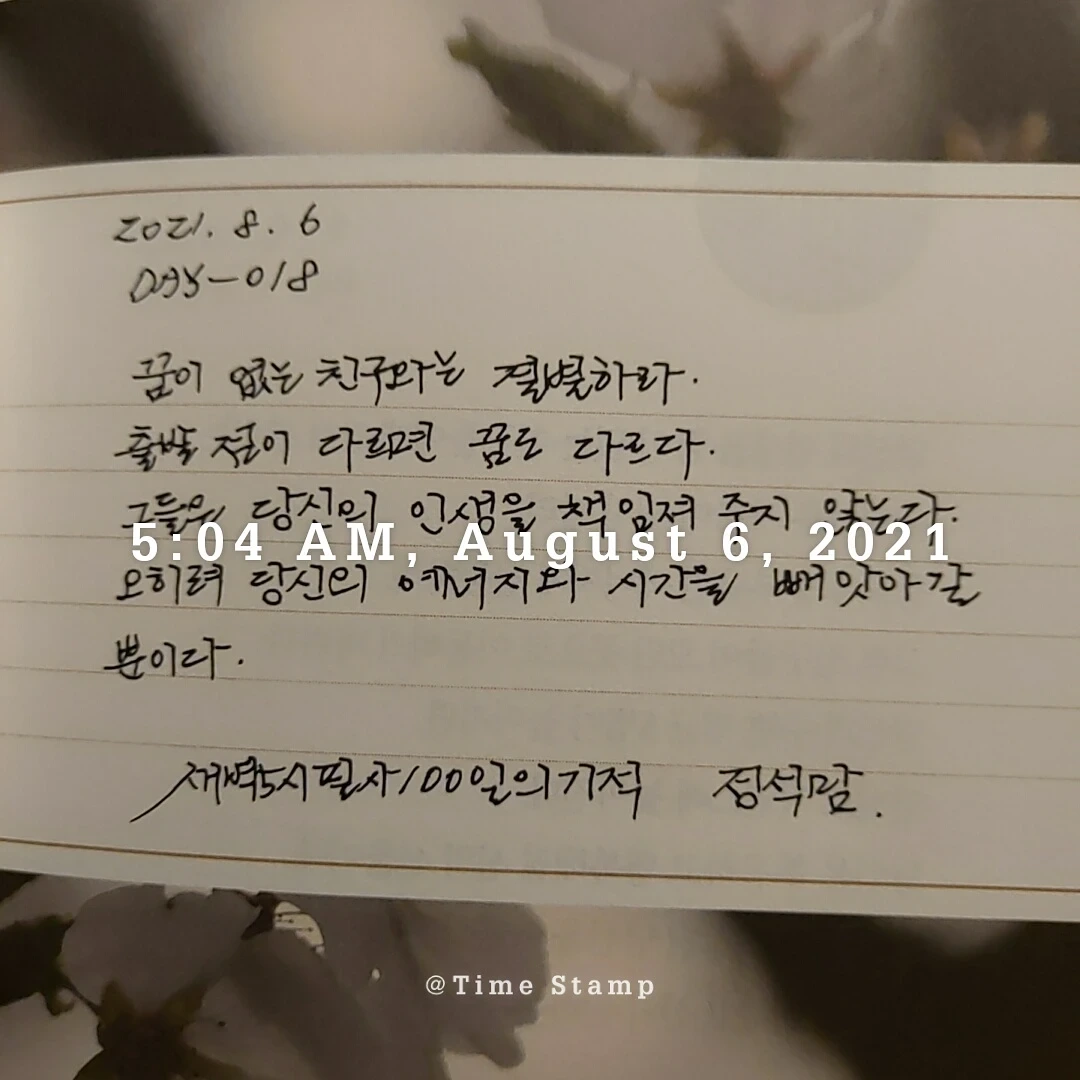 2021. 8. 6
DAY-018
꿈이 없는 친구와는 결별하라.
출발점이 다르면 꿈도 다르다.
그들은 당신의 인생을 책임져 주지 않는다.
5:04 AM, August 6, 2021
오히려 당신의 에너지와 시간을 빼앗아갈
뿐이다.
새벽5시필사100일의기적 정석맘.
@Time Stamp